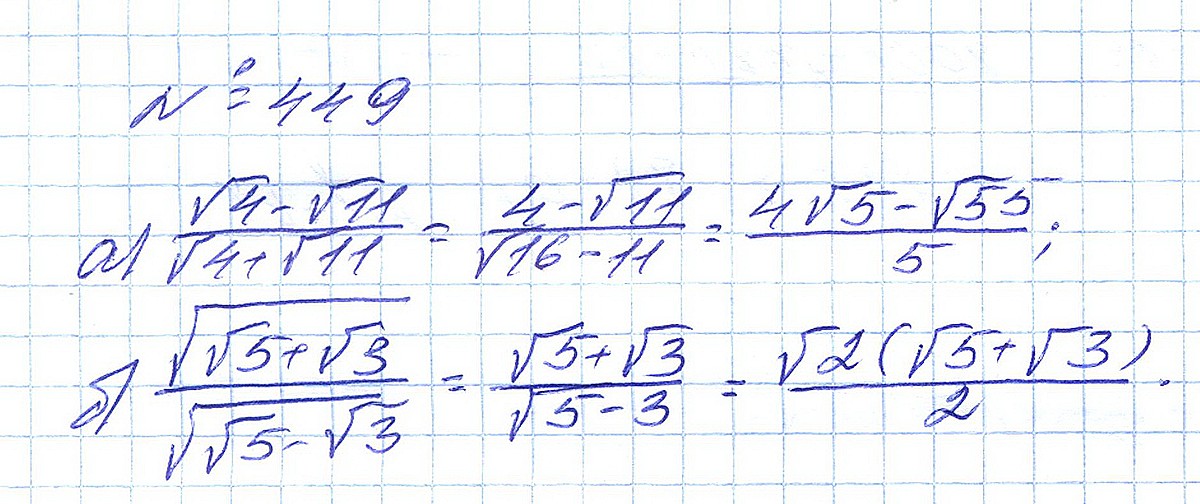 № 449
а) √4-√11/√4+√11 = 4-√11/√16-11 = 4√5-√55/5;
б) √(√5+√3)/√(√5-√3) = √5+√3/√5-3 = √2(√5+√3)/2.